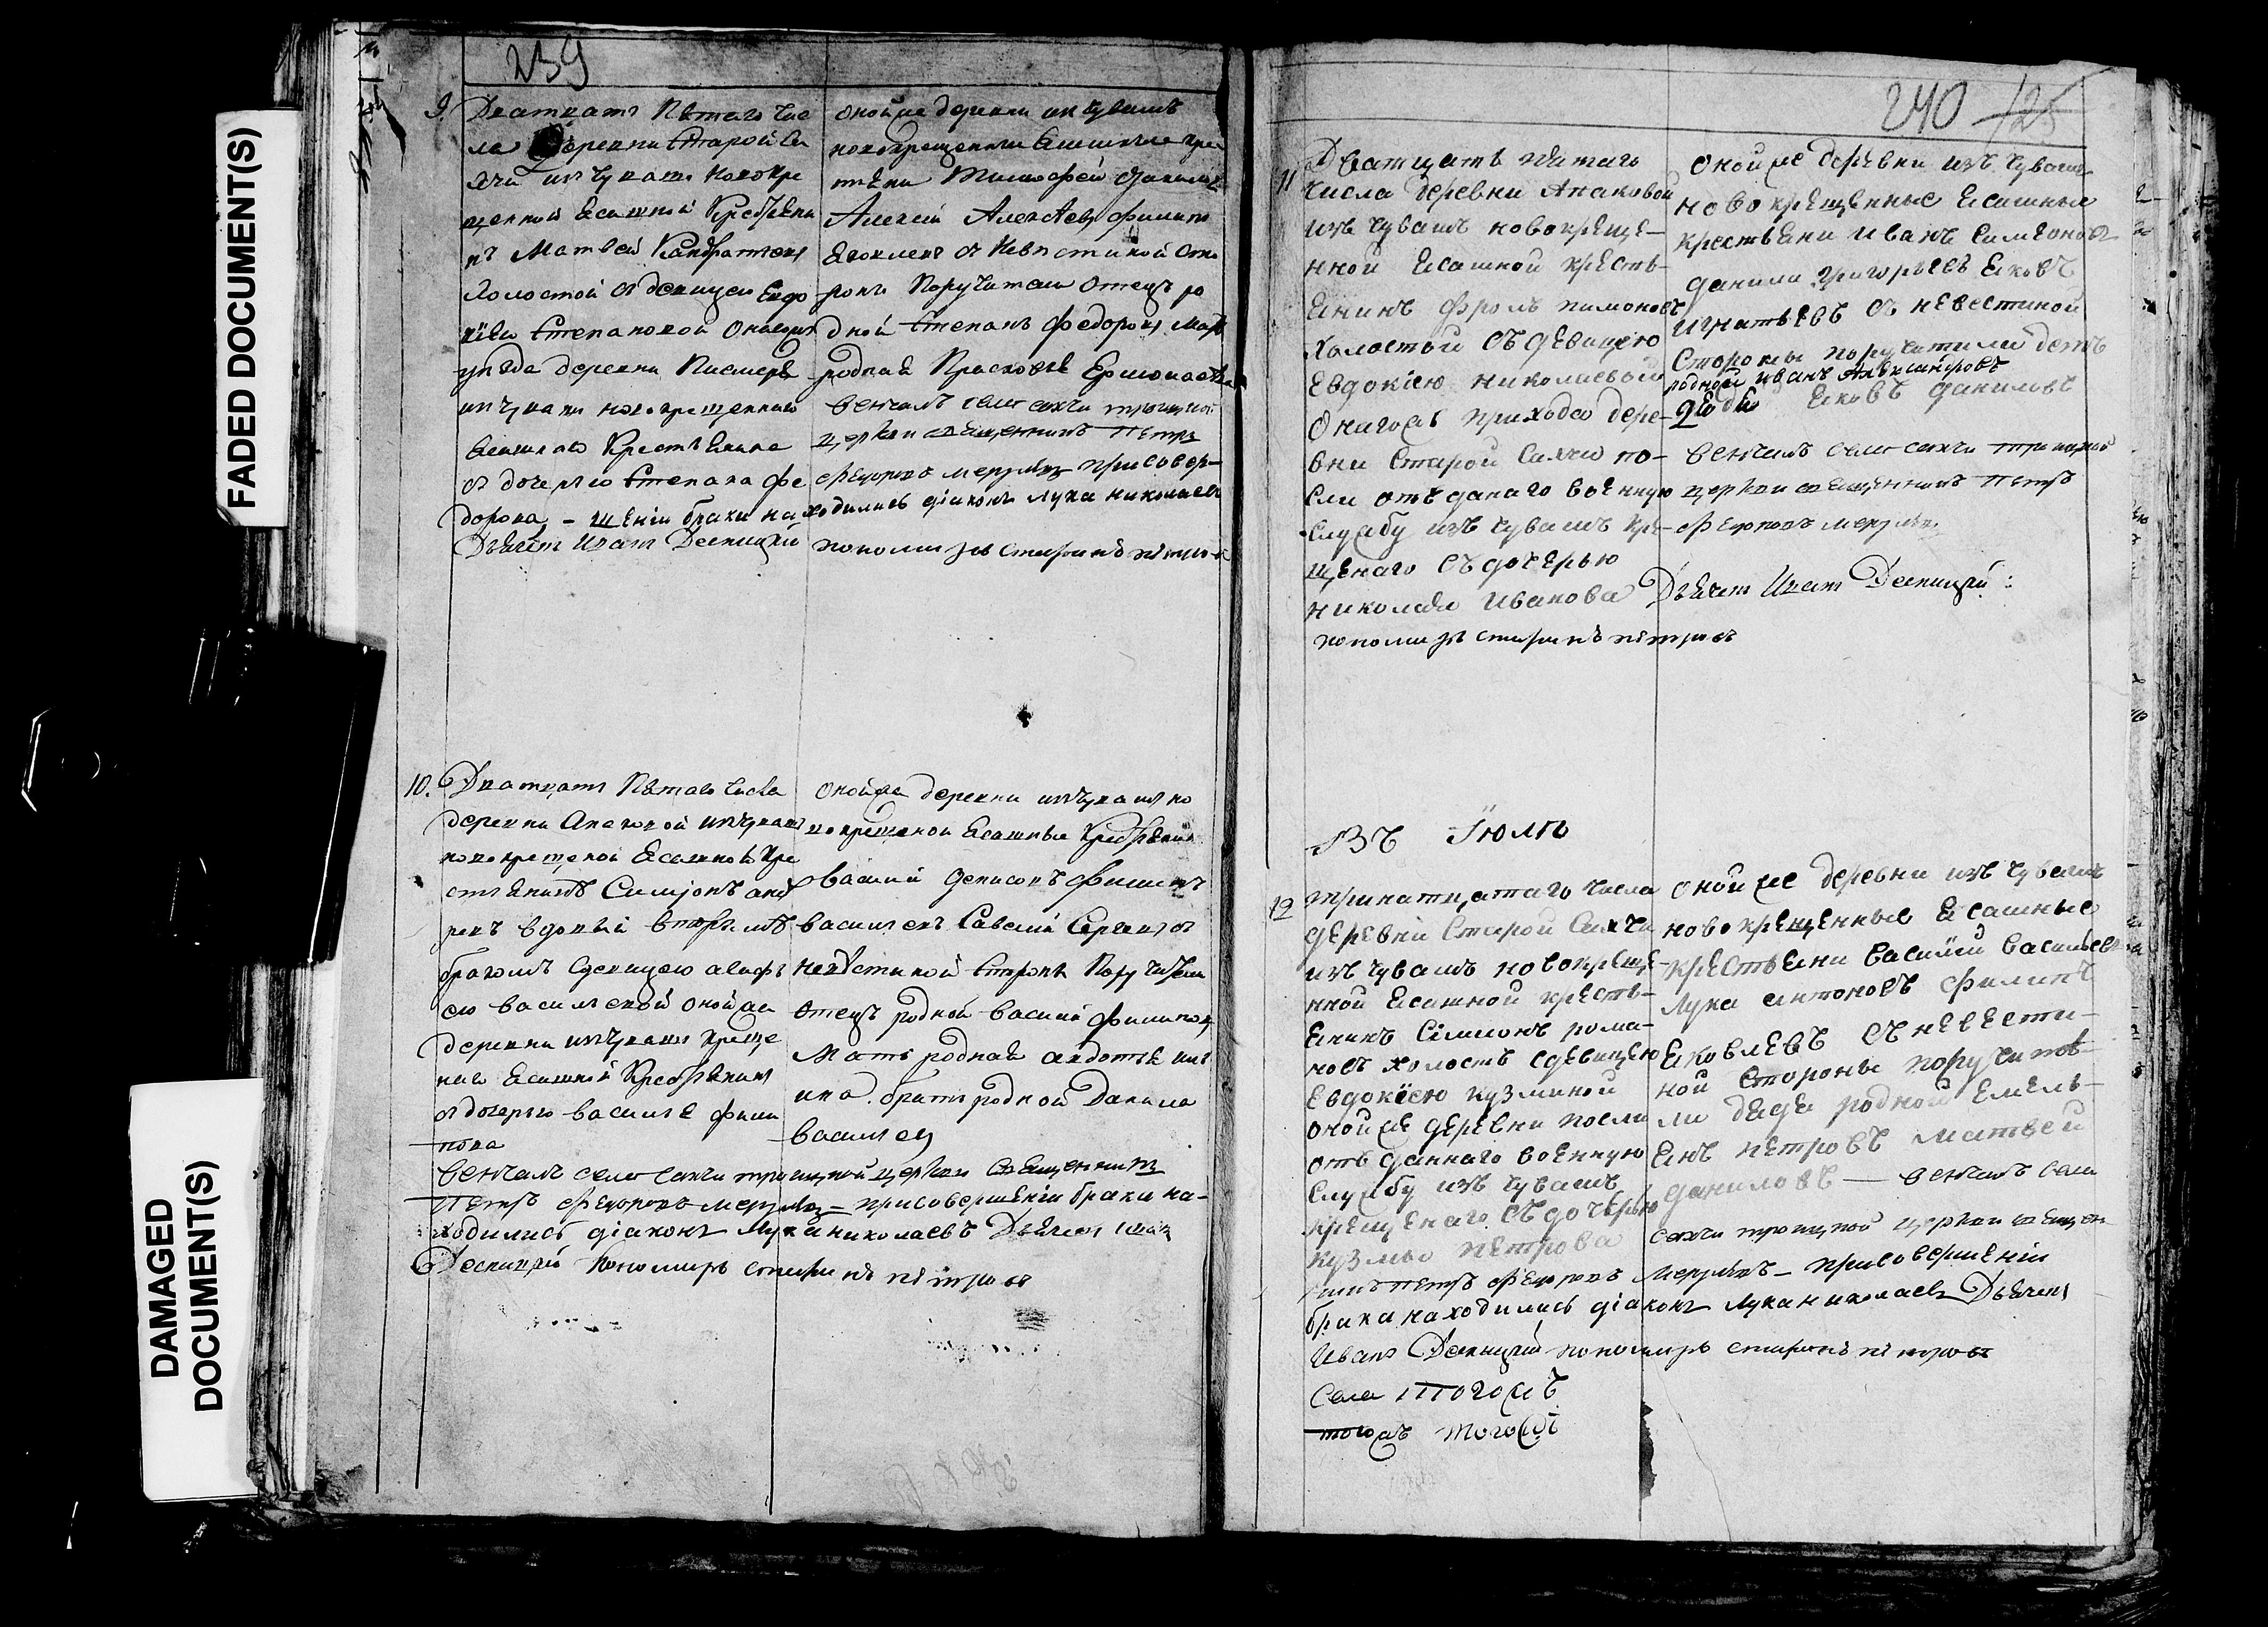 FADED DOCUMENT(S)
DAMAGED
DOCUMENT(S)
239
9.
Дватцатъ Пѣтаго чис
ла деревни Старой Са
хчи изъ чувашъ новокре
щенной Есашной Крестьяни
нъ Матвей Кандратьевъ
холостой съ девицею Евдо
кіею Степановой онагожъ
уезда деревни
изъ чувашъ новокрещеннаго
Ясашнаго Крестьянина
съ дочерью Степана Фе
дорова
оной же деревни изъ чувашъ
новокрещенныи Ясашные кре
стьяни Тимофей Данилов
Алексей Алексѣевъ Филипъ
Яковлевъ съ Невѣстиной сто
роны Поручители Отецъ ро
дной Степанъ Федоровъ Мать
родная Прасковья Ермолаева
венчалъ села сахчи троицкой
церкви священникъ Петръ
Федоровъ присовер-
шеніи брака находились діаконъ Лука Николаевъ
Дьячекъ Иванъ Десницкій пономарь петровъ
10.
Дватцать Пѣтаго числа
деревни Апаковой изъ чувашъ
новокрещеной Ясашной Кре
стьянинъ Симионъ анд
реевъ вдовый вторымъ
бракомъ сдевицею
ею васильевой оной же
деревни изъ чувашъ креще
наго Ясашной Крестьянина
съ дочерью василья фили
пова
оной же деревни изъ чувашъ но
вокрещеной Ясашные Крестьяни
васили денисовъ Филипъ
васильевъ Савелий Сергеевъ съ
Невѣстиной Стороны Поручители
отецъ родной василий филиповъ
Мать родная авдотья
братъ родной Данила
васильевъ
венчалъ села сахчи троицкой церкви священникъ
Петръ Федоровъ присовершеніи брака на-
ходились діаконъ Лука николаевъ Дьячекъ Иванъ
Десницкій Пономарь петровъ
240 125
11
Дватцатъ пятаго
числа деревни Апаковой
изъ чувашъ новокреще-
нной Ясашной кресть-
янинъ Фролъ пимоновъ
холостой съ девицею
Евдокіею николаевой
Онагожъ прихода дере-
вни Старой Сахчи по-
сли отъ данаго военную
службу изъ чувашъ кре-
щенаго съ дочерью
николая Иванова
Оной же деревни изъ чувашъ
новокрещенные Ясашные
крестьяни Иванъ Симеоновъ
данила григорьевъ Яковъ
игнатьевъ съ невестиной
Стороны поручители детъ
родной иванъ Александровъ
дядя Яковъ даниловъ
венчалъ села сахчи троицкой
церкви священникъ Петръ
Федоровъ
Дьячекъ Иванъ Десницкий
пономарь петровъ
Въ Іюлѣ
12
тринатцатаго числа
деревни Старой Сахчи
изъ чувашъ новокреще-
нной Ясашной кресть-
янинъ Симионъ рома-
новъ холостъ сдевицею
Евдокіею кузминой
оной же деревни посли
отъ даннаго военную
службу изъ чувашъ
крещенаго съ дочерью
кузмы петрова
оной же деревни изъ чувашъ
новокрещенные Ясашные
крестьяни василій васильевъ
лука антоновъ филипъ
яковлевъ съ невести-
ной Стороны поручите-
ли дядя родной Емель-
янъ петровъ матвей
даниловъ — венчалъ села
сахчи троицкой церкви священ
никъ петръ Федоровъ присовершеніи
брака находились діаконъ лука николаевъ Дьячекъ
Иванъ Десницкий пономарь петровъ
Села тогожъ
тогожъ тогожъ